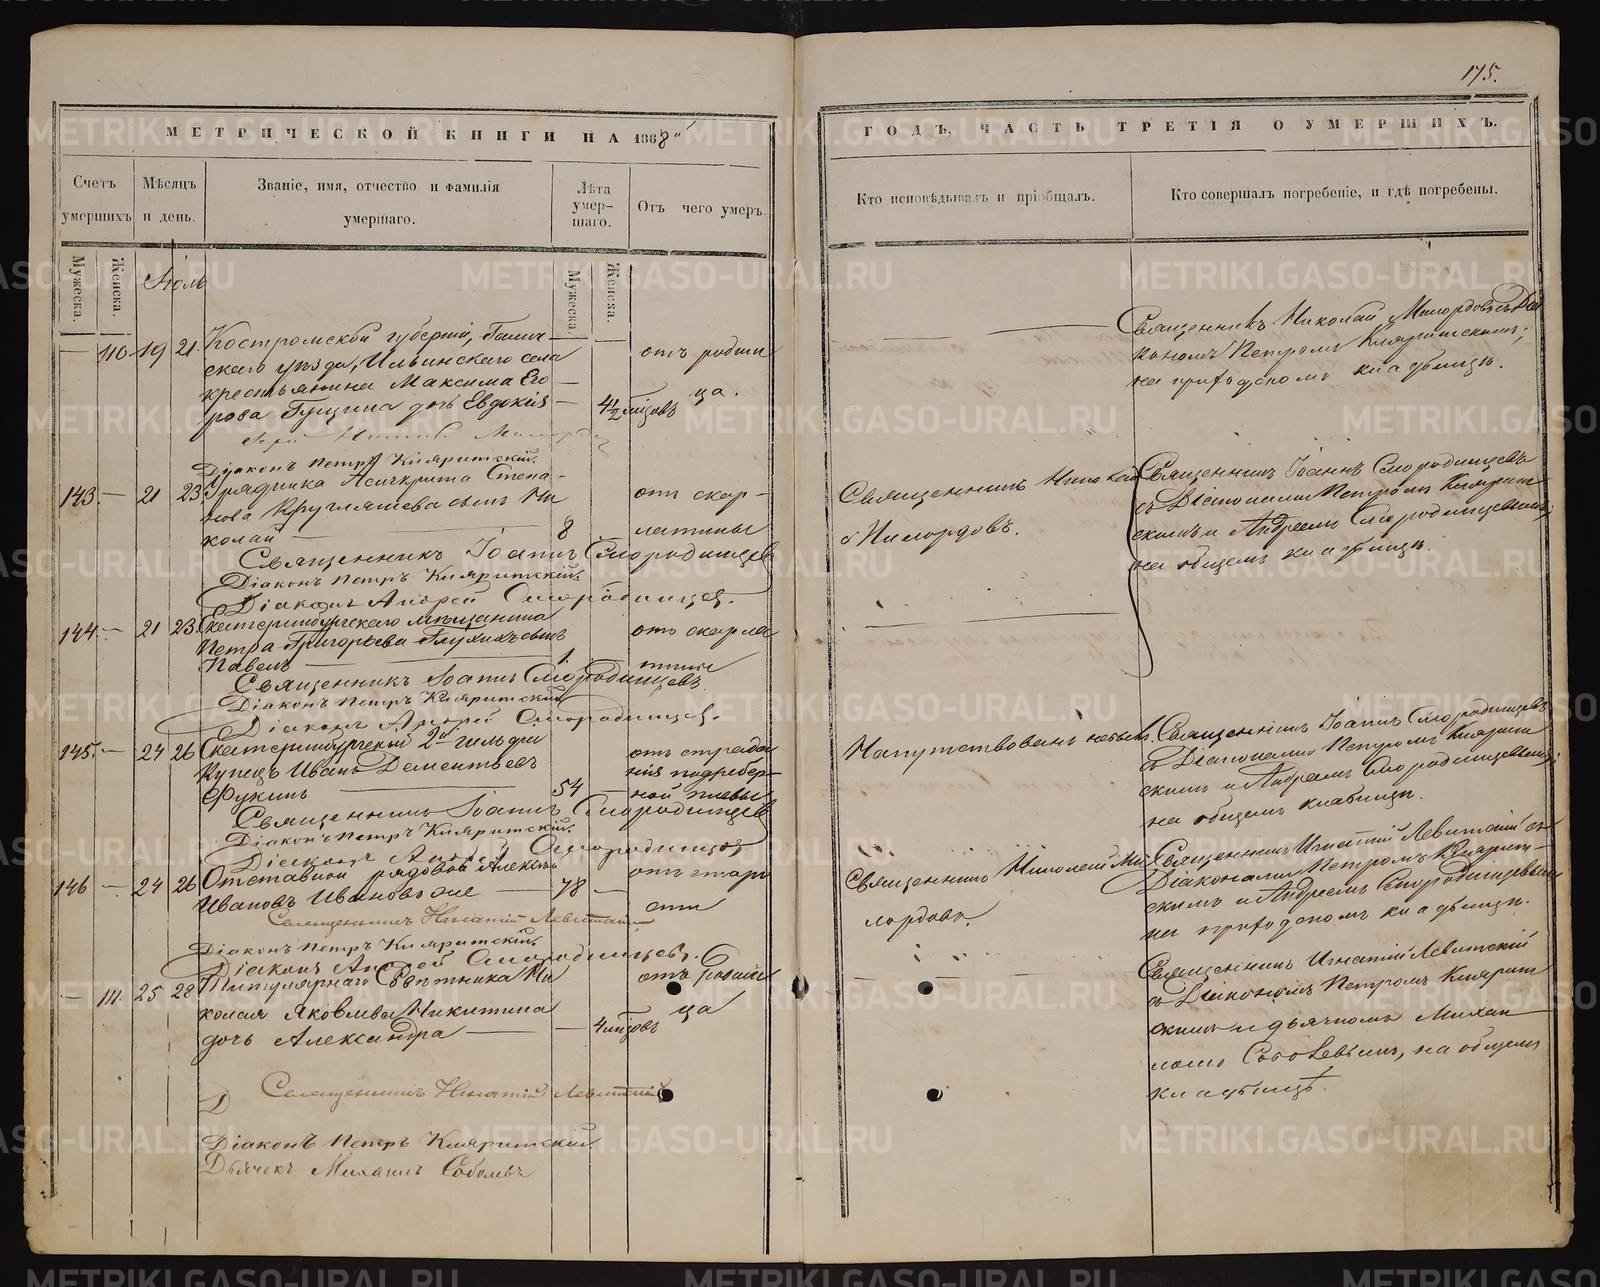 175.
МЕТРИЧЕСКОЙ КНИГИ НА 1868
ГОДЪ, ЧАСТЬ ТРЕТІЯ О УМЕРШИХЪ.
Счетъ умершихъ
Мѣсяцъ и день.
Званіе, имя, отчество и фамилія умершаго.
Лѣта умер-шаго.
Отъ чего умеръ.
Кто исповѣдывалъ и пріобщалъ.
Кто совершалъ погребеніе, и гдѣ погребены.
Мужеска.
Женска.
Мужеска.
Женска.
Іюль
110 19 21 Костромской губерніи,
скаго уѣзда, Ильинскаго села
крестьянина Максима Его-
рова Гущина дочь Евдокія
4 1/2 мѣсяцовъ
отъ родим
ца.
Священникъ Николай Милордовъ съ Діа
кономъ Петромъ
на приходскомъ кладбищѣ.
Діаконъ Петръ
143 21 23 Урядника Асигкрита Степа-
нова Кругляшева сынъ Ни
колай
8
отъ скар-
латины
Священникъ Николай
Милордовъ.
Священникъ Іоаннъ Смородинцевъ
съ Діаконами Петромъ
скимъ и Андреемъ Смородинцевымъ,
на общемъ кладбищѣ.
Священникъ Іоаннъ Смородинцевъ
Діаконъ Петръ
Діаконъ Андрей Смородинцев.
144 21 23 Екатеринбургскаго мѣщанина
Петра Григорьева Глухихъ сынъ
Павелъ
1.
отъ скарла
тины
Священникъ Іоаннъ Смородинцевъ
Діаконъ Петръ
Діаконъ Андрей Смородинцев.
145. 24 26 Екатеринбургскій 2й гильдіи
Купецъ Иванъ Дементьевъ
Фукинъ
54
отъ страда
нія подребер-
ной плевы
Напутствованъ
Священникъ Іоаннъ Смородинцевъ
съ Діаконами Петромъ
скимъ и Андреемъ Смородинцевымъ,
на общемъ кладбищѣ.
Священникъ Іоаннъ Смородинцевъ
Діаконъ Петръ
Діаконъ Андрей Смородинцев
146 24 26 Отставной рядовой Алексѣй
Ивановъ Ивановъ же
78
отъ старо
сти
Священникъ Николай Ми
лордовъ.
Священникъ Игнатій Левитскій съ
Діаконами Петромъ
скимъ и Андреемъ Смородинцевымъ
на приходскомъ кладбищѣ.
Священникъ Игнатій Левитскій
Діаконъ Петръ
Діаконъ Андрей Смородинцевъ.
111. 25 28 Титулярнаго Совѣтника Ни
колая Яковлева Никитина
дочь Александра
4 мѣсяцовъ
отъ Родим
ца
Священникъ Игнатій Левитскій
съ Діакономъ Петромъ
скимъ и дьячкомъ Михаи
ломъ Соболевымъ, на общемъ
кладбищѣ.
Священникъ Игнатій Левитскій
Діаконъ Петръ
Дьячекъ Михаилъ Соболевъ
METRIKI.GASO-URAL.RU